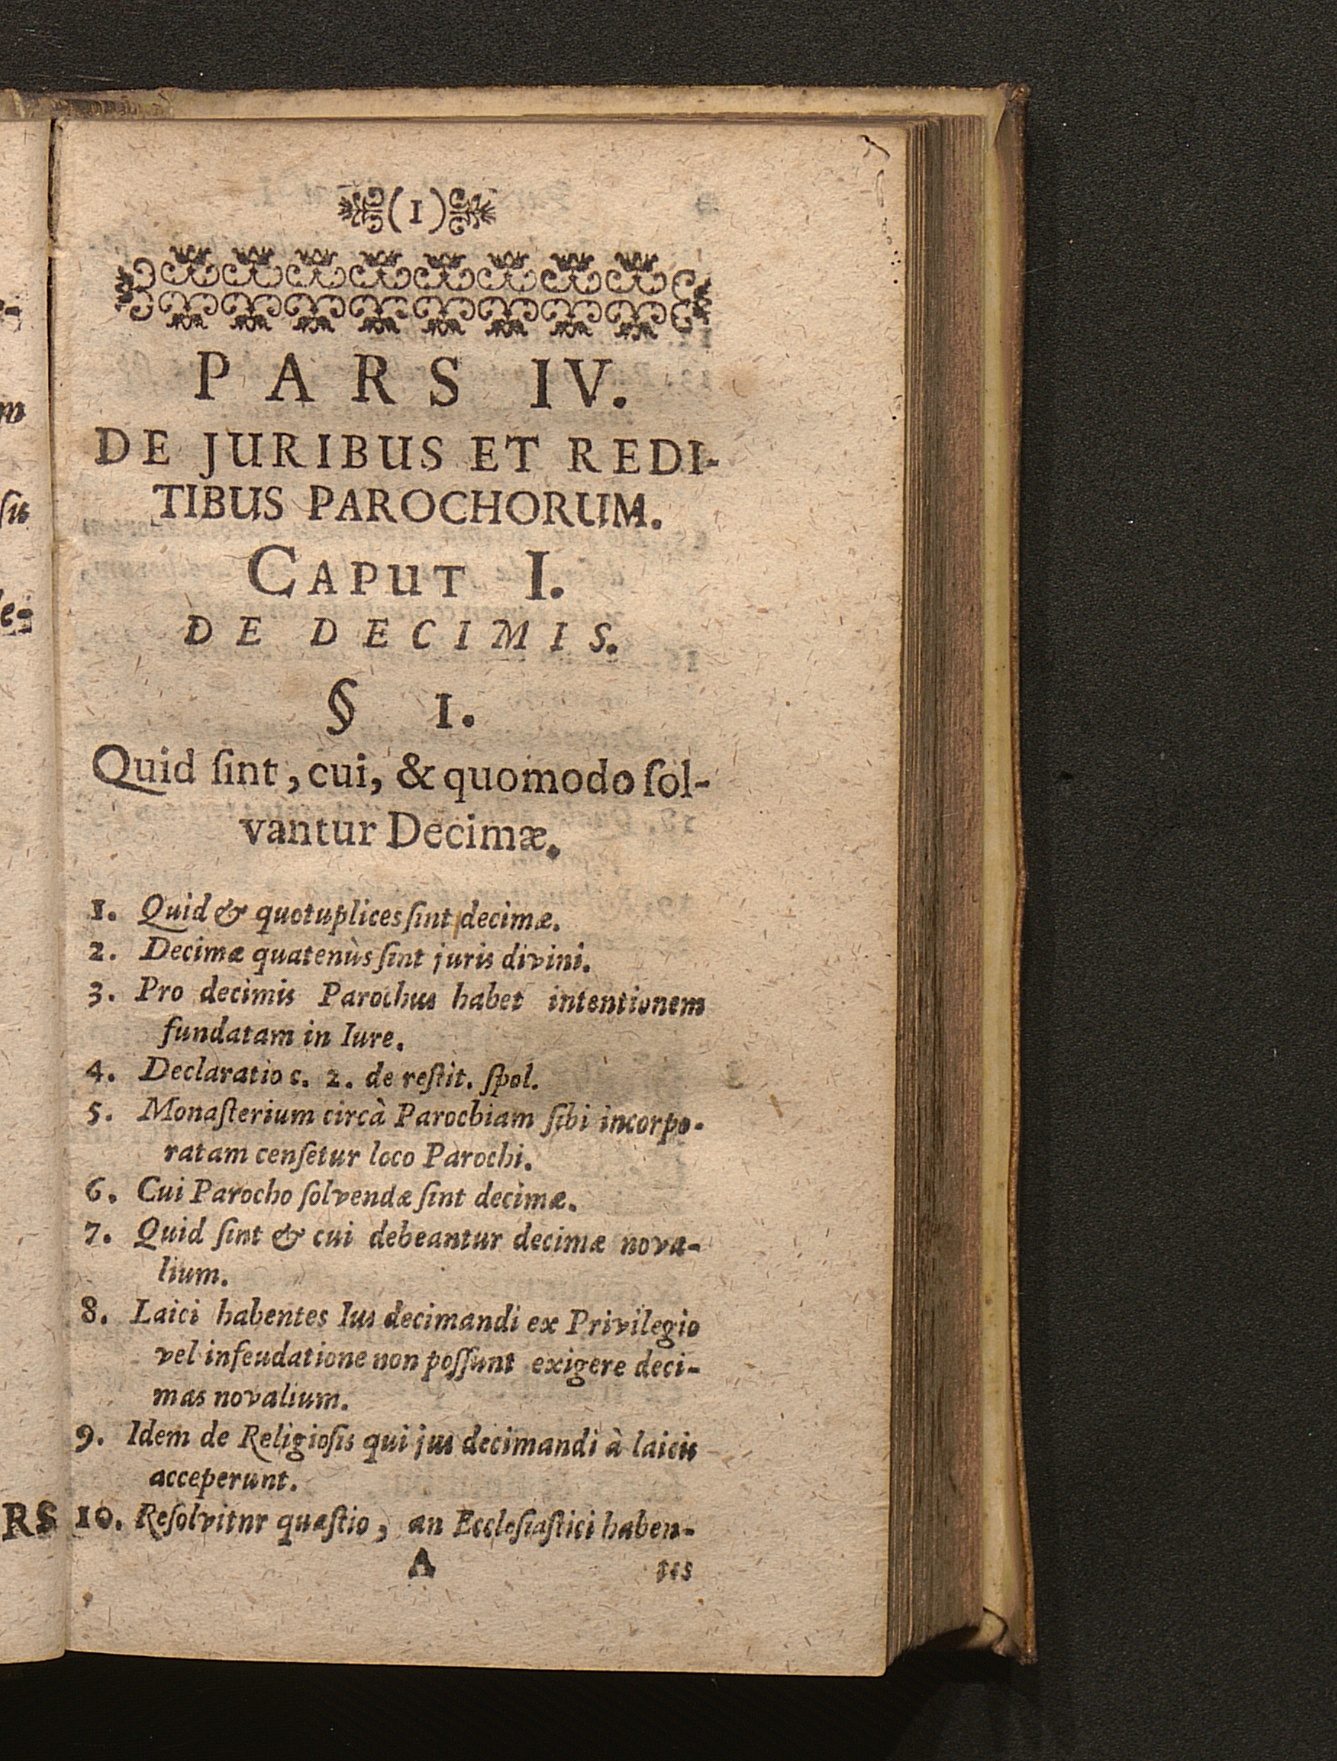 (1)
PARS IV.
DE JURIBUS ET REDI-
TIBUS PAROCHORUM.
CAPUT I.
DE DECIMIS.
§ 1.
Quid ſint, cui, & quomodo ſol-
vantur Decimæ.
1. Quid & quotuplices ſint decimæ.
2. Decimæ quatenùs ſint juris divini.
3. Pro decimis Parochus habet intentionem
fundatam in Iure.
4. Declaratio c. 2. de reſtit. ſpol.
5. Monaſterium circà Parochiam ſibi incorpo-
ratam cenſetur loco Parochi.
6. Cui Parocho ſolvendæ ſint decimæ.
7. Quid ſint & cui debeantur decimæ nova-
lium.
8. Laici habentes Ius decimandi ex Privilegio
vel infeudatione non poſſunt exigere deci-
mas novalium.
9. Idem de Religioſis qui jus decimandi à laicis
acceperunt.
RS
10. Reſolvitnr quæſtio, an Eccleſiaſtici haben-
A
tes